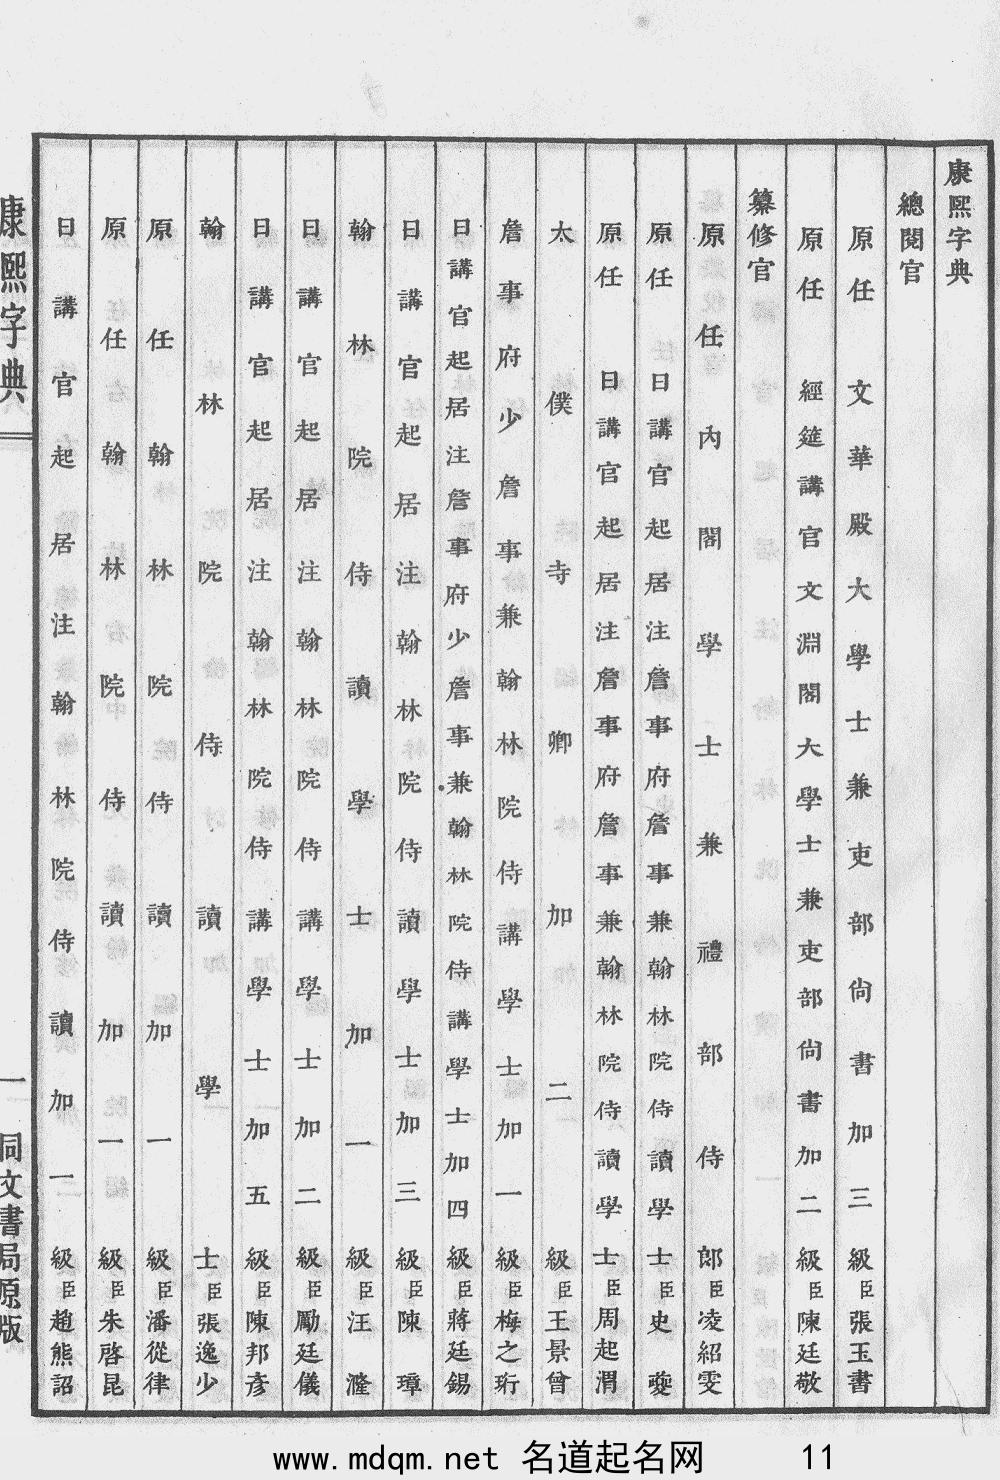 康熙字典
總閱官
原任文華殿大學士兼吏部尙書加三級臣張玉書
原任經筵講官文淵閣大學士兼吏部尙書加二級臣陳廷敬
纂修官
原任內閣學士兼禮部侍郎臣凌紹雯
原任日講官起居注詹事府詹事兼翰林院侍讀學士臣史夔
原任日講官起居注詹事府詹事兼翰林院侍讀學士臣周起渭
太僕寺卿加二級臣王景曾
詹事府少詹事兼翰林院侍講學士加一級臣梅之珩
日講官起居注詹事府少詹事兼翰林院侍講學士加四級臣蔣廷錫
日講官起居注翰林院侍讀學士加三級臣陳璋
翰林院侍讀學士加一級臣汪漋
日講官起居注翰林院侍講學士加二級臣勵廷儀
日講官起居注翰林院侍講學士加五級臣陳邦彥
翰林院侍讀學士臣張逸少
原任翰林院侍讀加一級臣潘從律
原任翰林院侍讀加一級臣朱啓昆
日講官起居注翰林院侍讀加一級臣趙熊詔
康熙字典
一
同文書局原版
www.mdqm.net 名道起名网 11